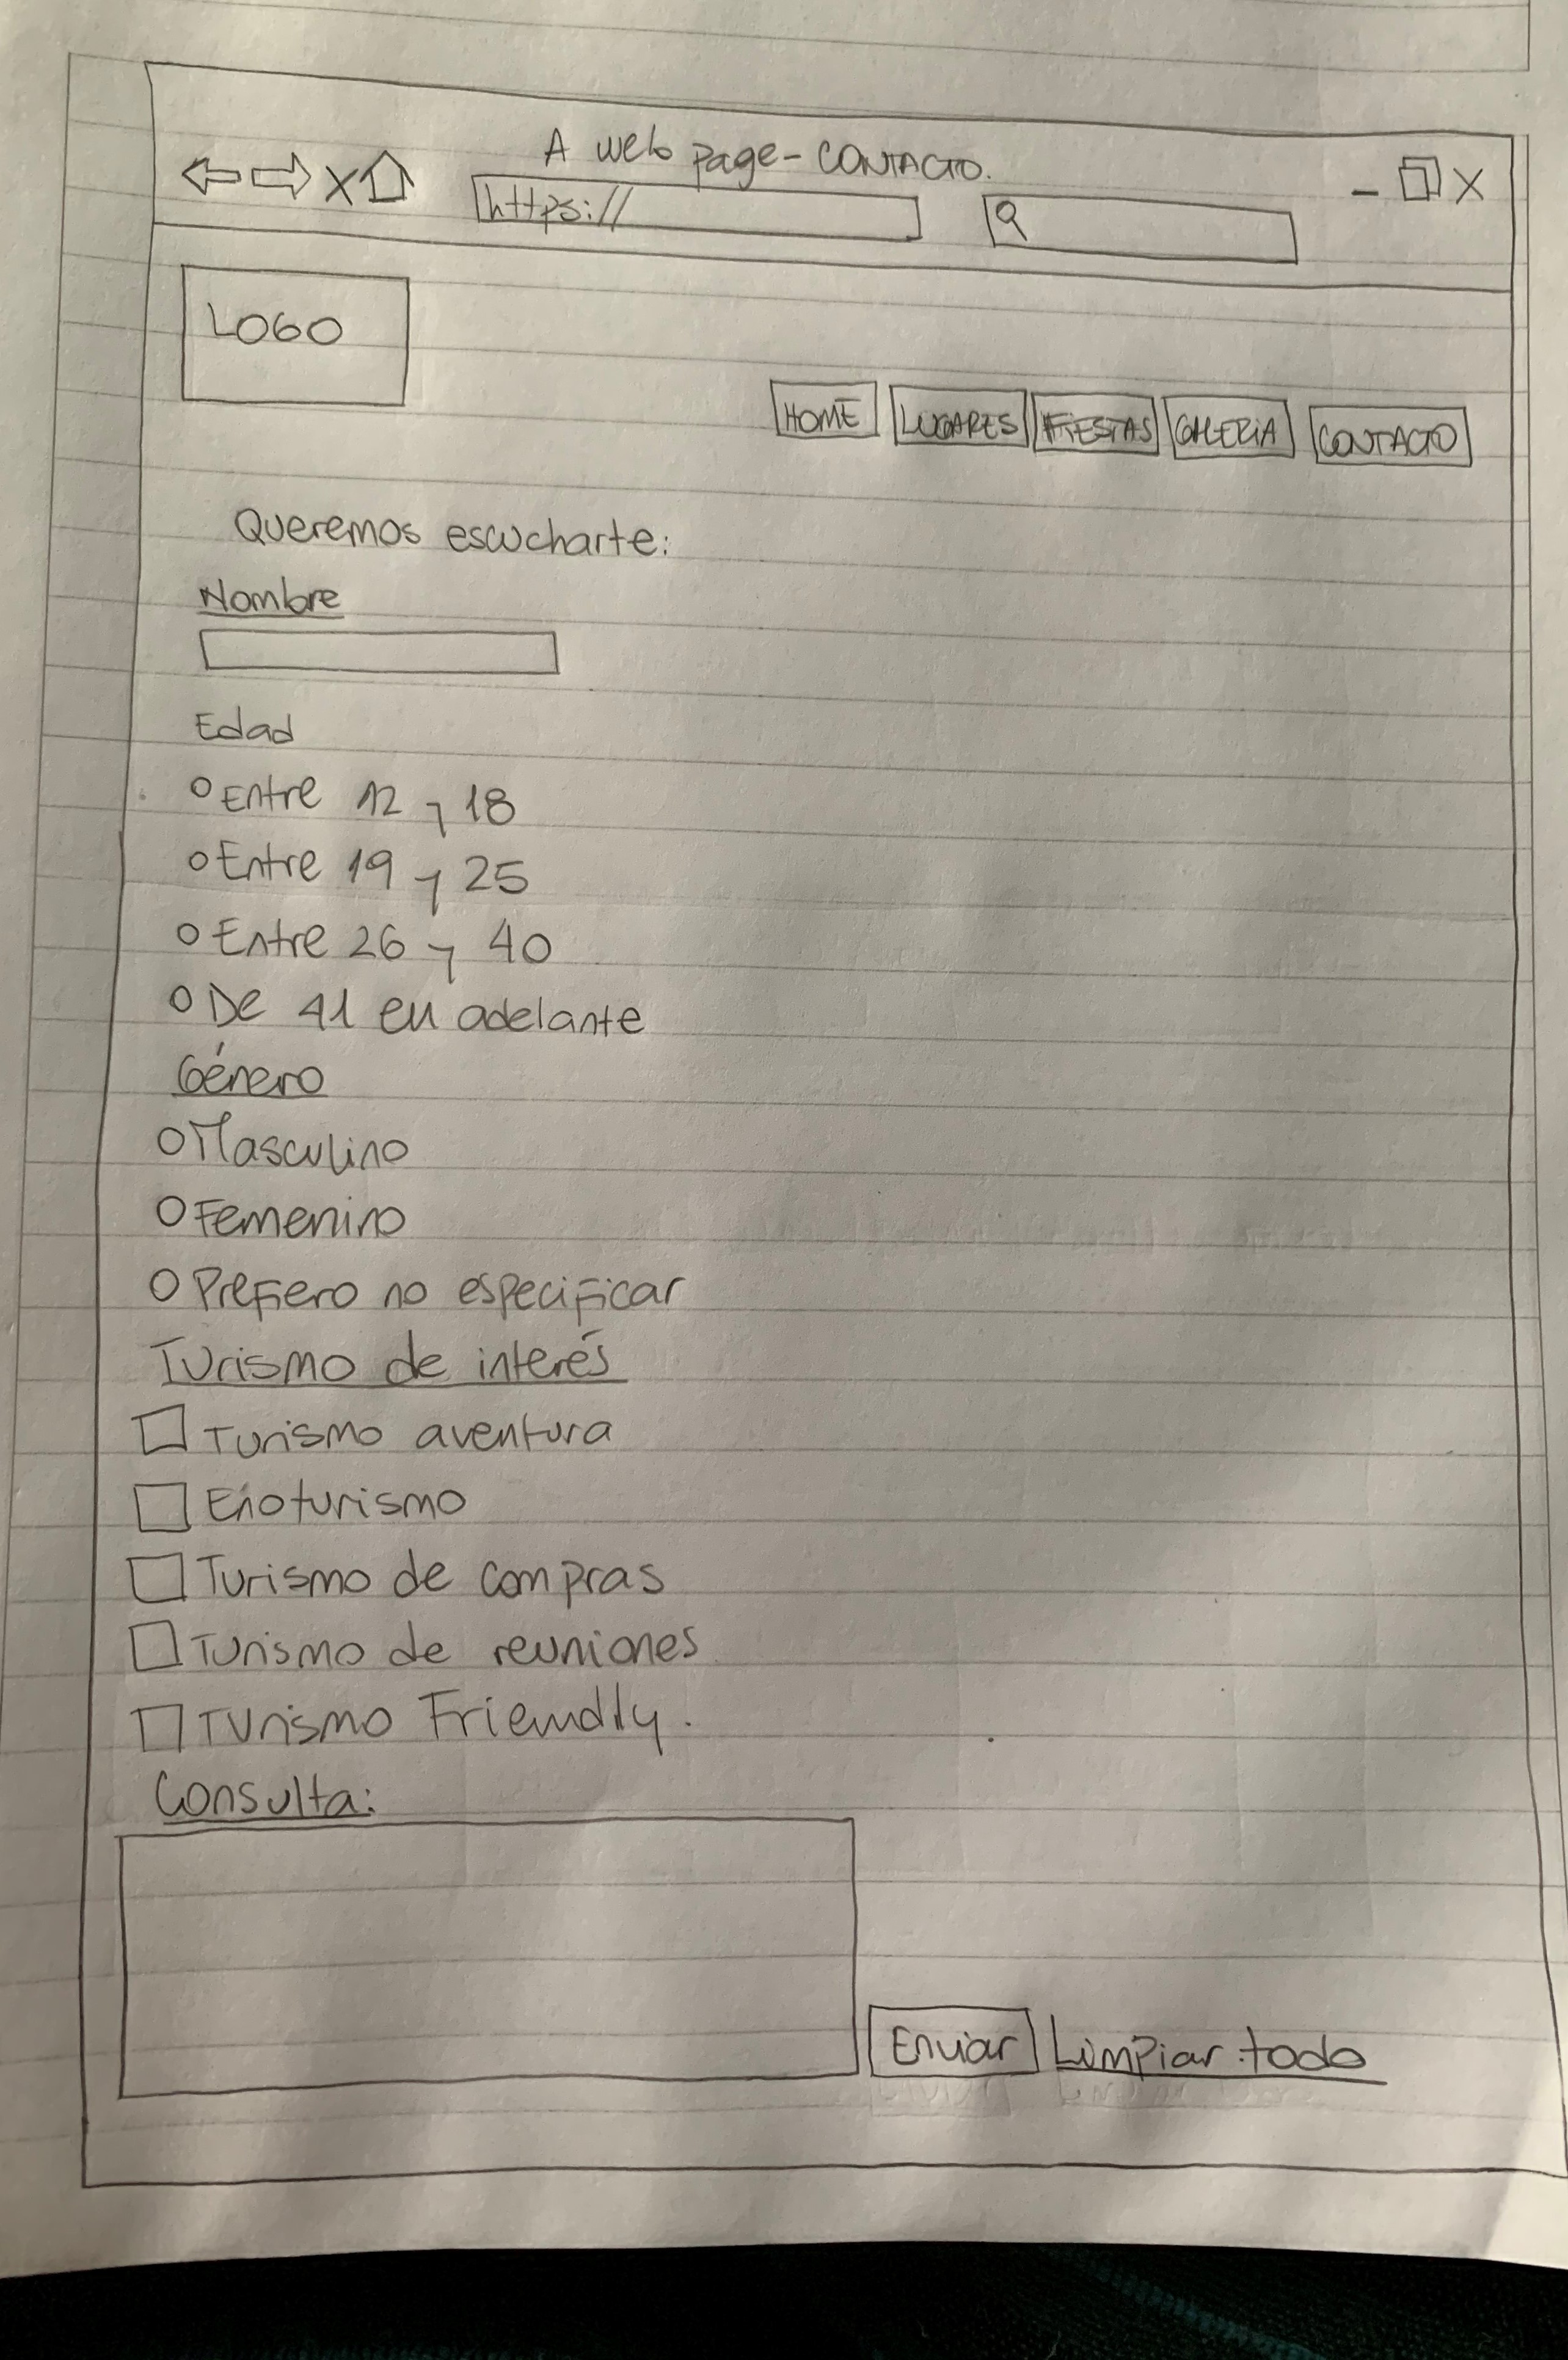 A web page - CONTACTO.
https://
LOGO
HOME LUGARES FIESTAS GALERIA CONTACTO
Queremos escucharte:
Nombre
Edad
Entre 12 y 18
Entre 19 y 25
Entre 26 y 40
De 41 en adelante
Género
Masculino
Femenino
Prefiero no especificar
Turismo de interés
Turismo aventura
Enoturismo
Turismo de compras
Turismo de reuniones
Turismo Friendly.
Consulta:
Enviar Limpiar todo